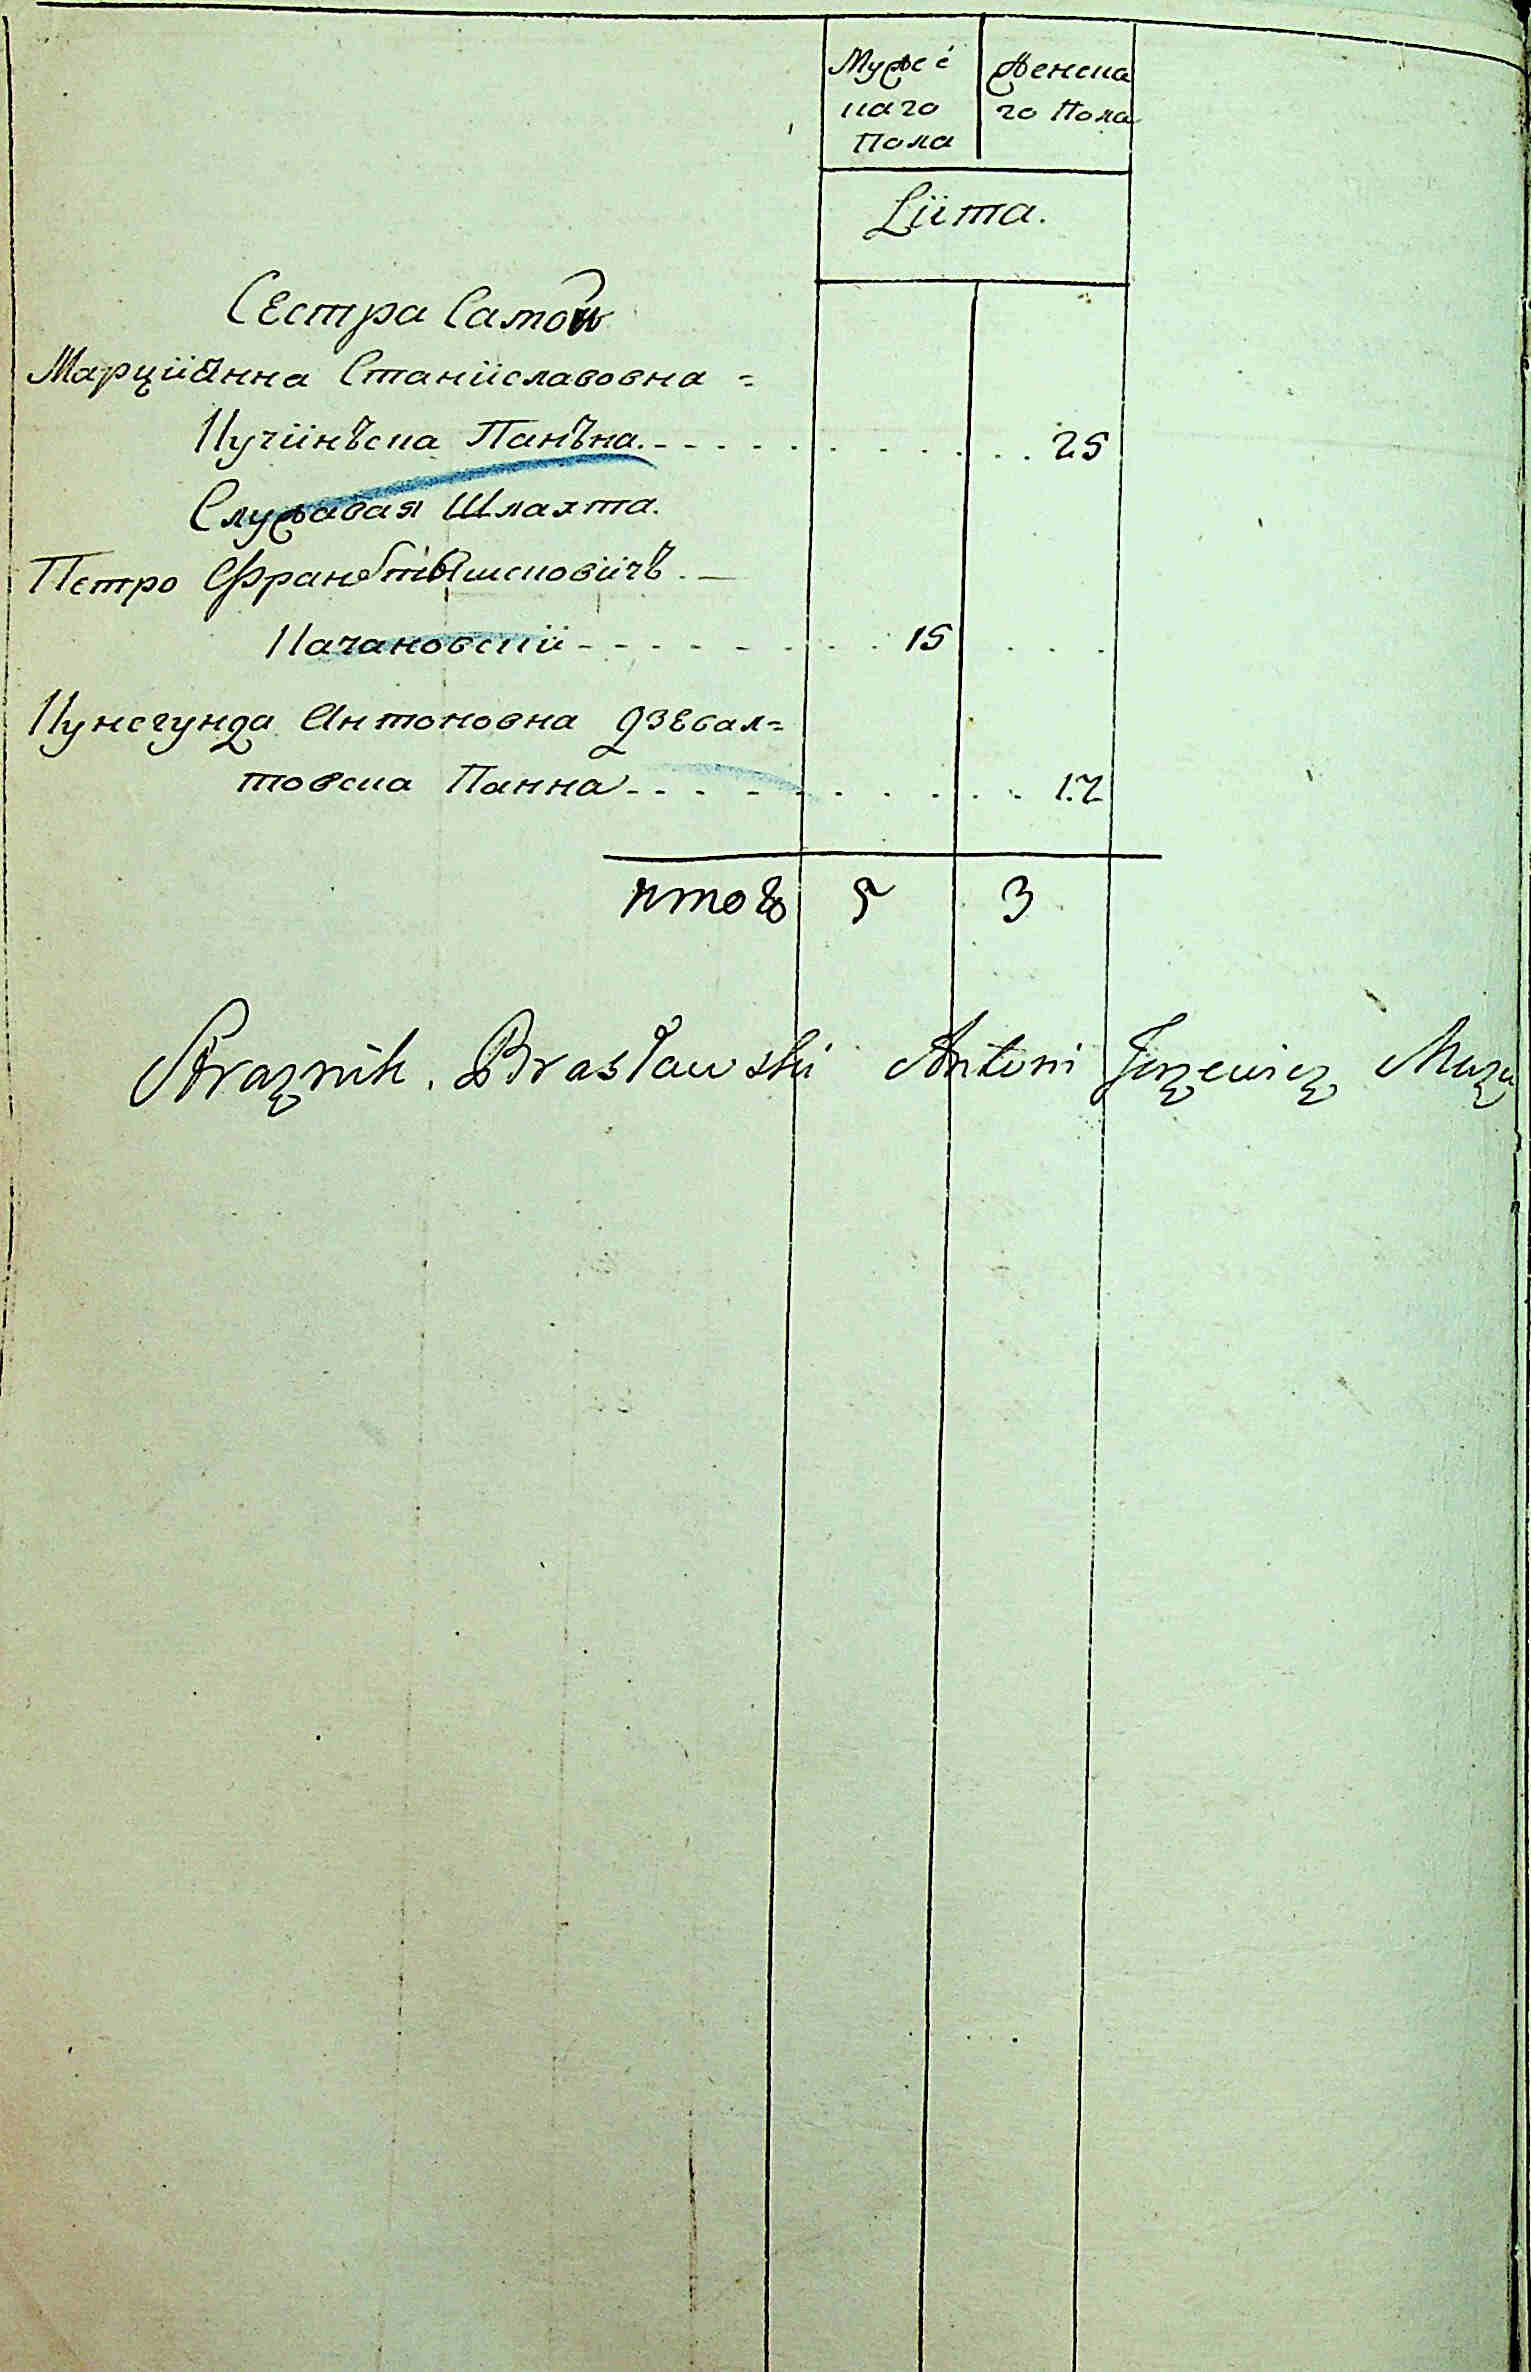 Мужес
каго
Пола
Женска
го Пола
Liiта.
Сестра Самой
Марцiiанна Станiiславовна =
Кучiiнъска Панъна. 25
Служавая Шлахта.
Петро Францышковiiчъ. –
Качановскii 15
Кунегунда Антоновна Дзевал=
товска Панна 17
итого 5 3
Straznik. Brasławski Antoni Jerzewicz